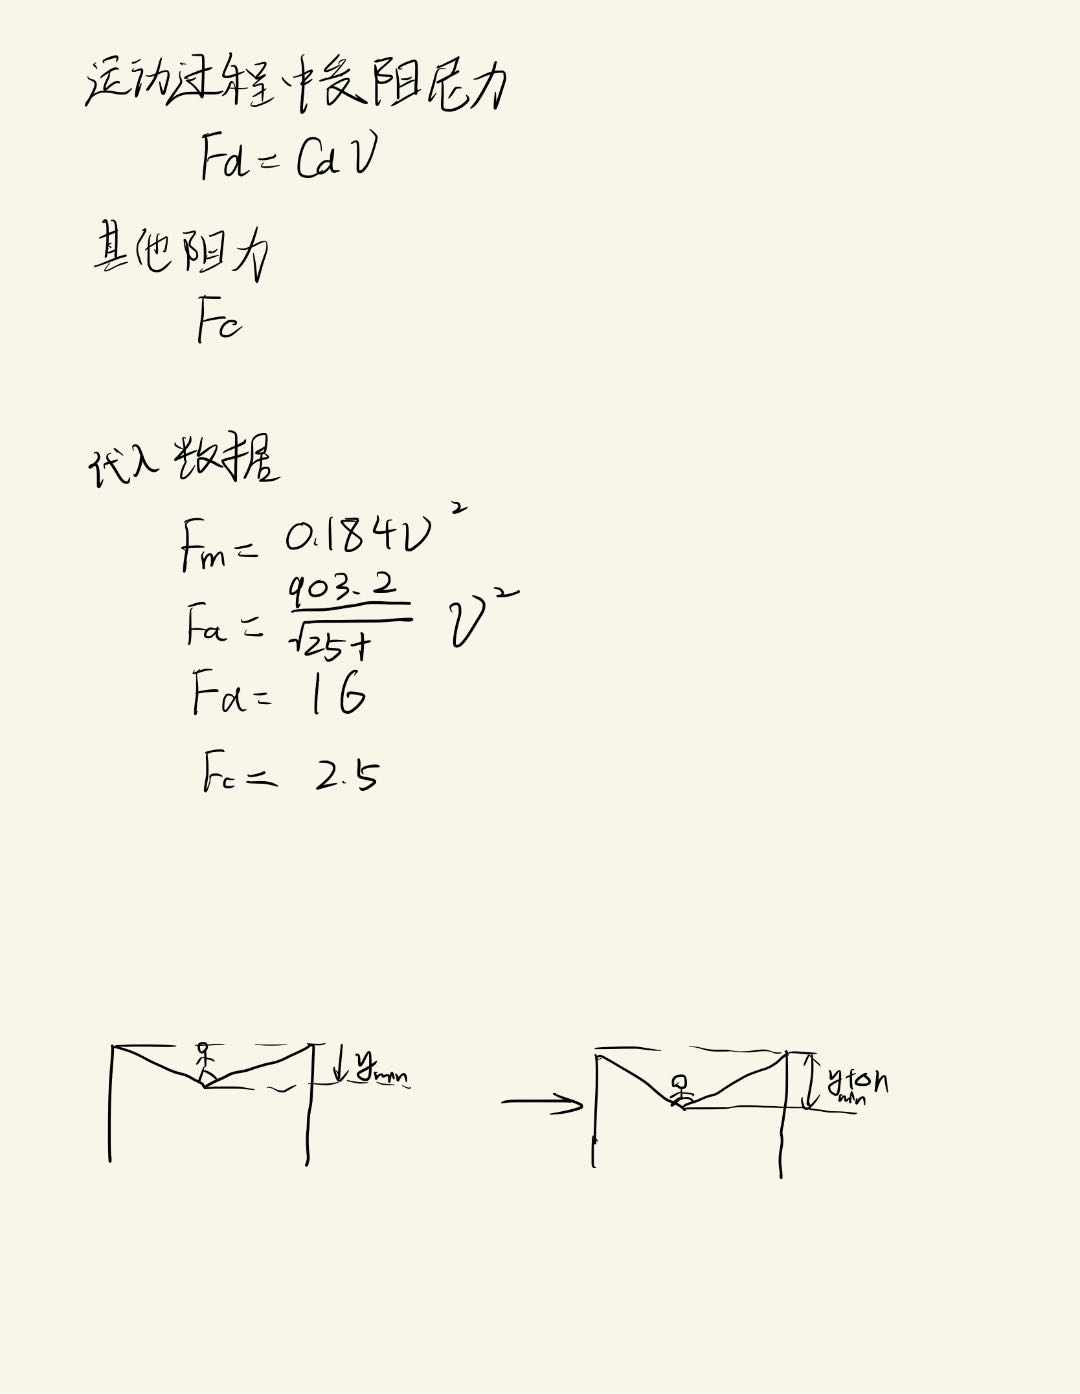 运动过程中受阻尼力
Fd = Cd v
其他阻力
Fc
代入数据
Fm = 0.184v²
Fa = 903.2 / √25+ v²
Fd = 16
Fc = 2.5
ymin
ymin